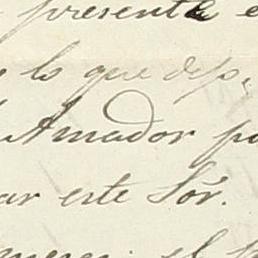 presente e
y lo que dep
Amador po
ar este Sõr.